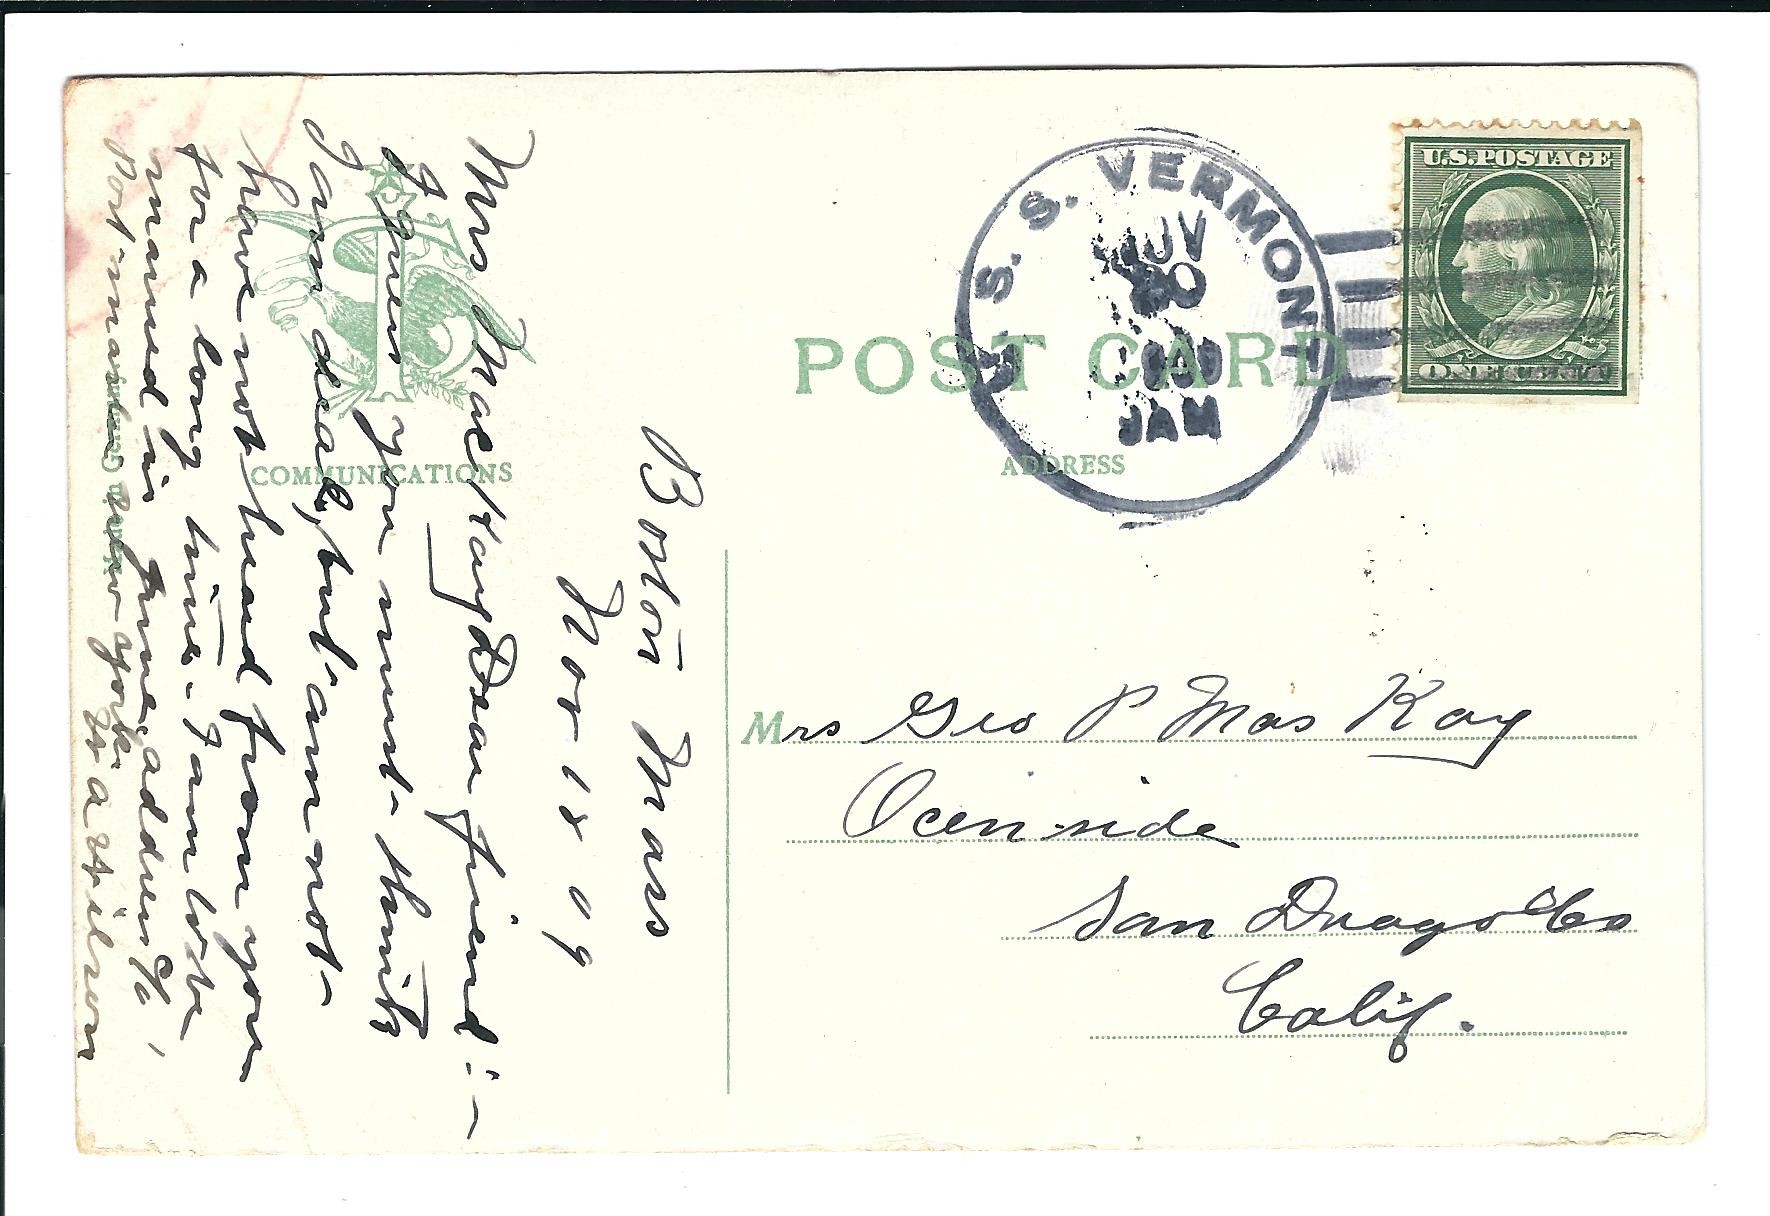 Boston Mass
Nov 18 09
Mrs MacKay Dear friend :-
I guess you must think
I am dead, but am not
have not heard from you
for a long time. I am to be
married in June. address c/o
Post-master New York.
J A Wilson
COMMUNICATIONS
POST CARD
ADDRESS
U. S. S. VERMONT
NOV
20
AM
U.S. POSTAGE
ONE CENT
Mrs Geo P MacKay
Ocenside
San Diago Co
Calif.